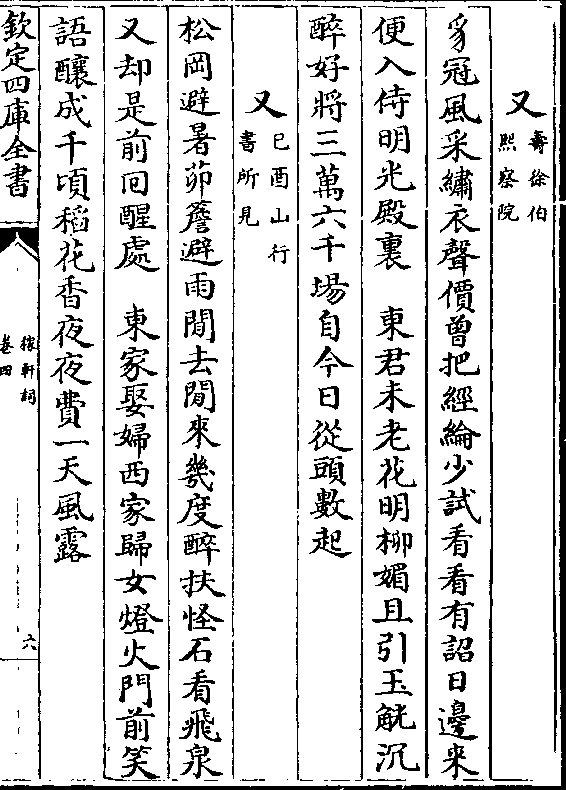 又 壽徐伯
熙察院
豸冠風采繡衣聲價曾把經綸少試看看有詔日邊來
便入侍明光殿裏 東君未老花明柳媚且引玉觥沉
醉好將三萬六千場自今日從頭數起
又 己酉山行
書所見
松岡避暑茆簷避雨閒去閒來幾度醉扶怪石看飛泉
又却是前回醒處 東家娶婦西家歸女燈火門前笑
語釀成千頃稻花香夜夜費一天風露
欽定四庫全書
稼軒詞
卷四
六